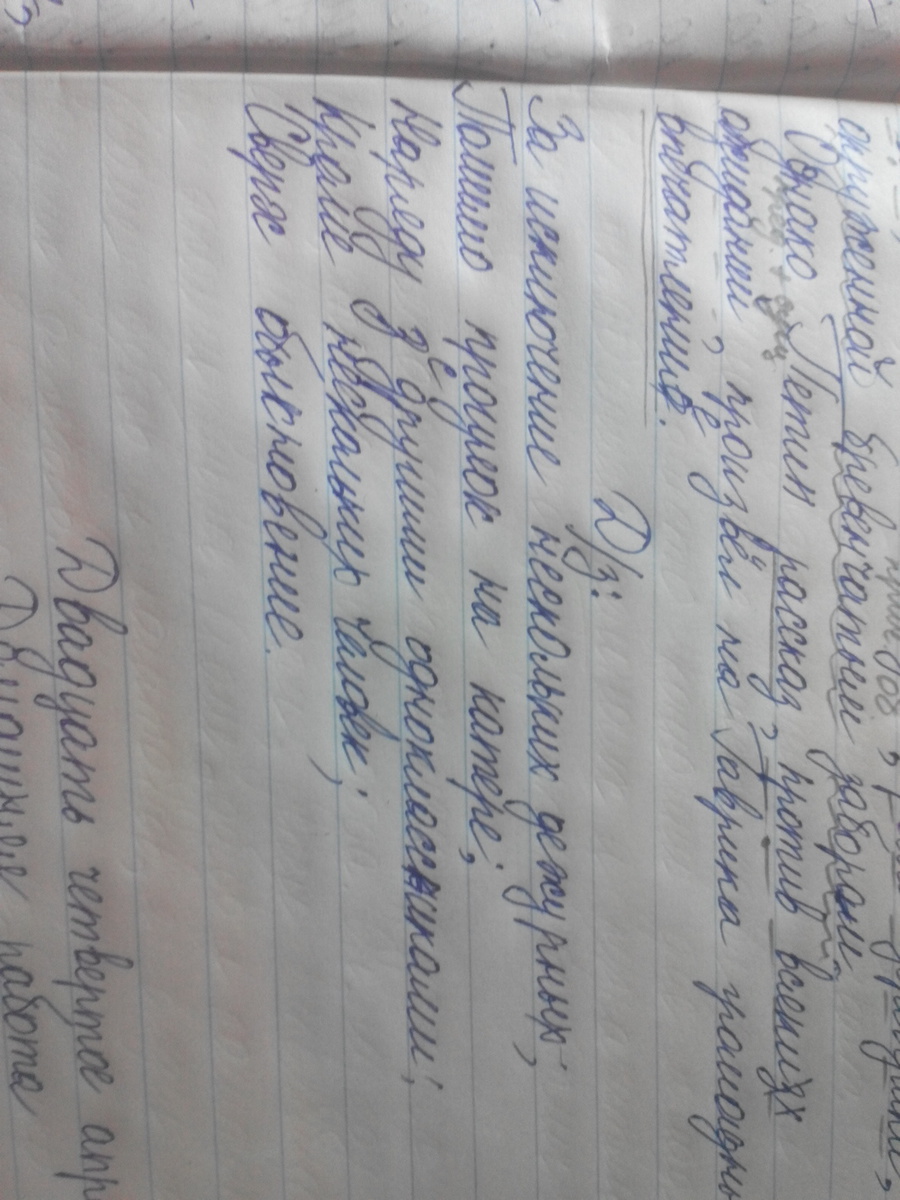 окруженной бревенчатыми заборами.
Однако Петин рассказ, против всяких
ожиданий, произвёл на Гаврика громадн
впечатление.
Д/з:
За исключение нескольких дежурных;
Помимо прогулок на катере;
Наряду с другими одноклассниками;
Кроме нескольких чашек;
Сверх обыкновение.
Двадцать четвертое апр
Домашняя работа